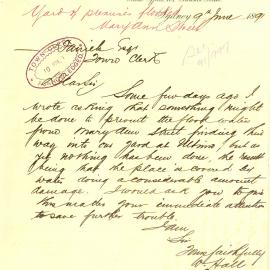 Yard of premises flooded
Mary Ann Street
Sydney 9th June 1891
Daniels Esq
Town Clerk
Dear Sir
Some few days ago I
wrote asking that something might
be done to prevent the flood water
from Mary Ann Street finding its
way into our yard at Ultimo, but as
yet nothing has been done, the result
being that the place is covered by
water doing a considerable amount
damage. I would ask you to give
this matter your immediate attention
to save further trouble.
I am
Sir
Yours faithfully
W Hall